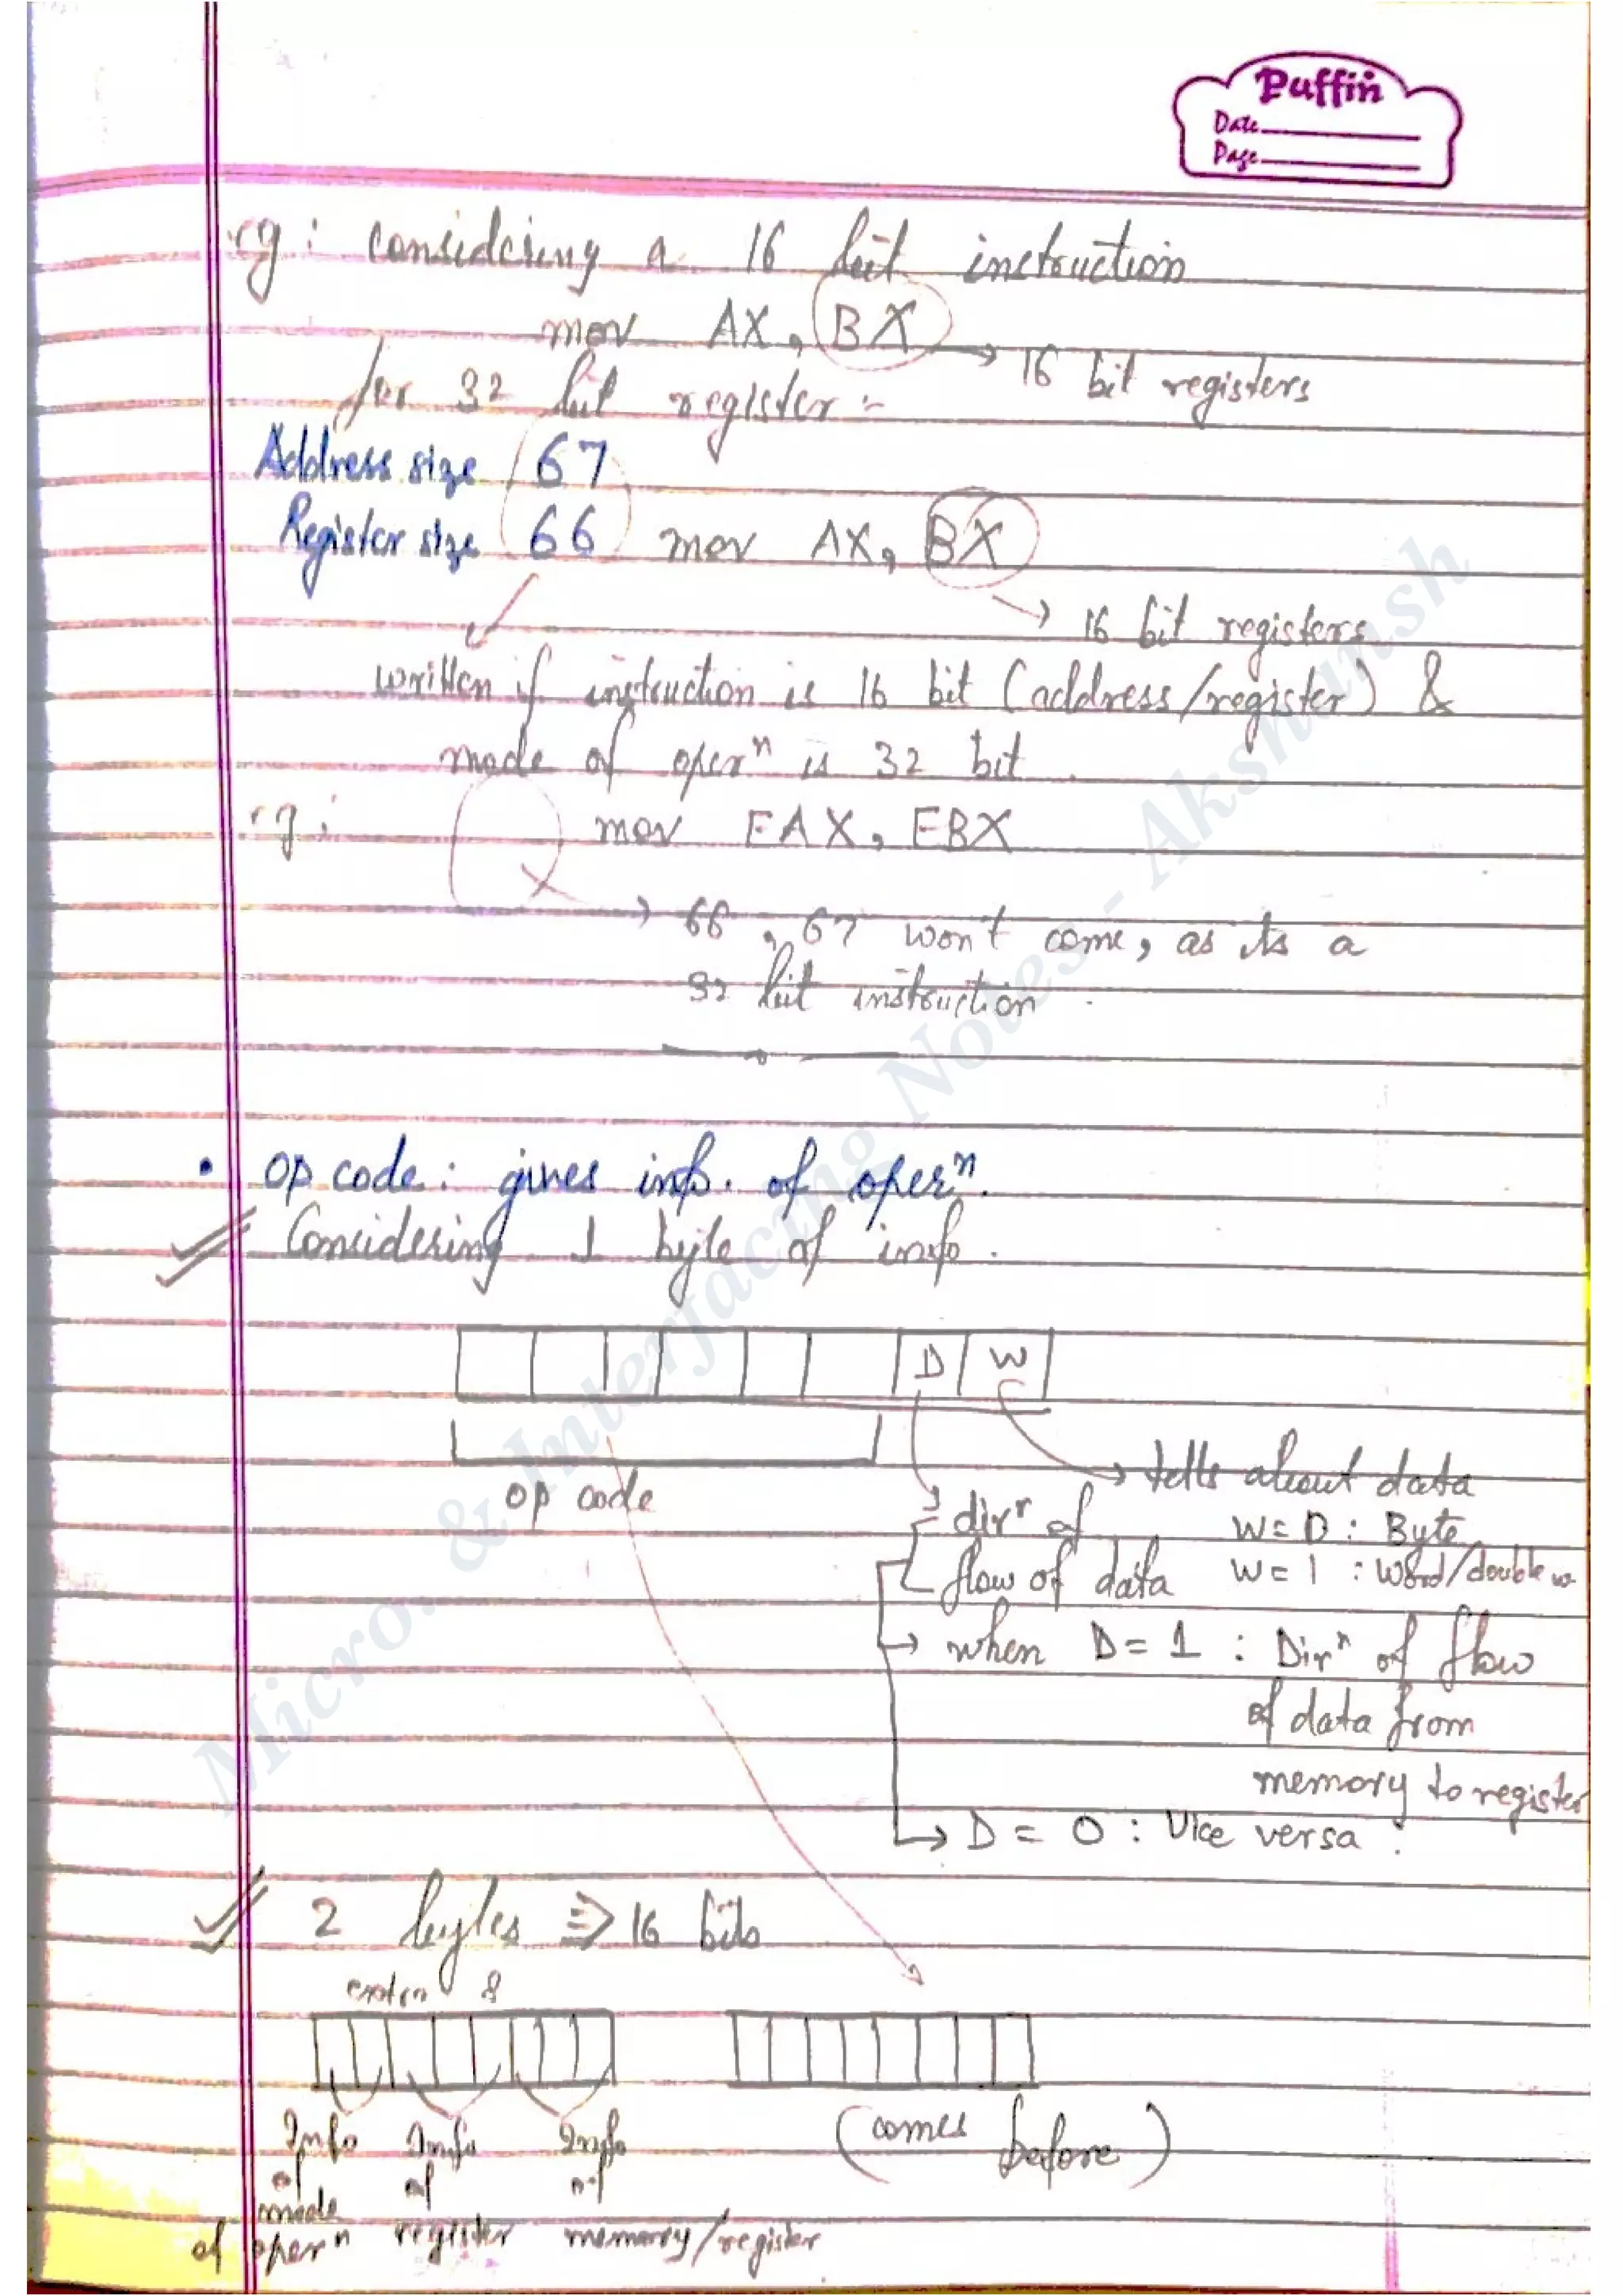 Puffin
Date
Page
eg : considering a 16 bit instruction
mov AX, BX
→ 16 bit registers
for 32 bit register :-
Address size 67
Register size 66 mov AX, BX
→ 16 bit registers
written if instruction is 16 bit (address/register) &
mode of operⁿ is 32 bit.
eg : mov EAX, EBX
→ 66, 67 won't come, as its a
32 bit instruction.
• op code : gives info. of operⁿ.
Considering 1 byte of info.
D W
op code
→ tells about data
W = 0 : Byte
W = 1 : Word/double w.
dirⁿ of
flow of data
→ when D = 1 : Dirⁿ of flow
of data from
memory to register
→ D = 0 : Vice versa.
2 bytes ⇒ 16 bits
extra 8
Info of mode of operⁿ
Info of register
Info of memory/register
(comes before)
Micro. & Interfacing Notes - Akshansh